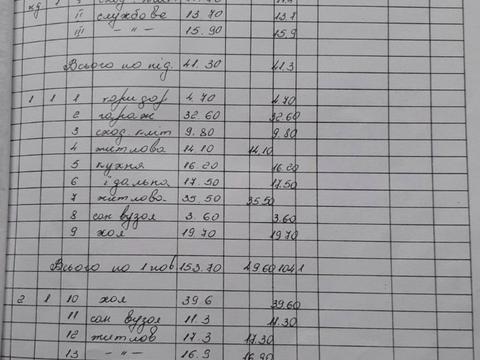 кд 1
II службове 13.70 13.7
III —"— 15.90 15.9
Всього по під. 41.30 41.3
1 1 1 коридор 4.70 4.70
2 гараж 32.60 32.60
3 сход. кліт 9.80 9.80
4 житлова 14.10 14.10
5 кухня 16.20 16.20
6 їдальна 17.50 17.50
7 житлова 35.50 35.50
8 сан вузол 3.60 3.60
9 хол 19.70 19.70
Всього по 1 пов 153.70 49.60 104.1
2 1 10 хол 39.6 39.60
11 сан вузол 11.3 11.30
12 житлов 17.3 17.30
13 —"— 16.9 16.90